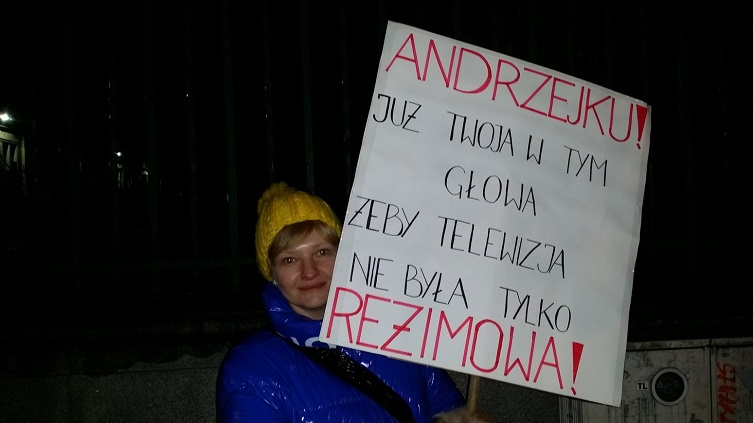 ANDRZEJKU!
JUŻ TWOJA W TYM
GŁOWA
ŻEBY TELEWIZJA
NIE BYŁA TYLKO
REŻIMOWA!
TL